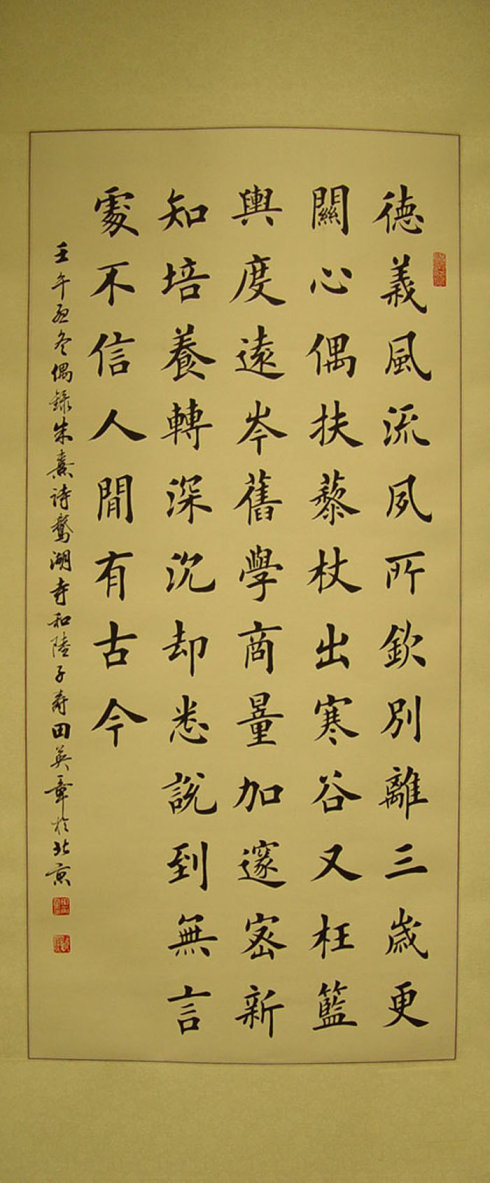 德義風流夙所欽別離三歲更
關心偶扶藜杖出寒谷又枉籃
輿度遠岑舊學商量加邃密新
知培養轉深沉却愁說到無言
處不信人間有古今
壬午孟冬偶錄朱熹詩鵞湖寺和陸子壽田英章於北京